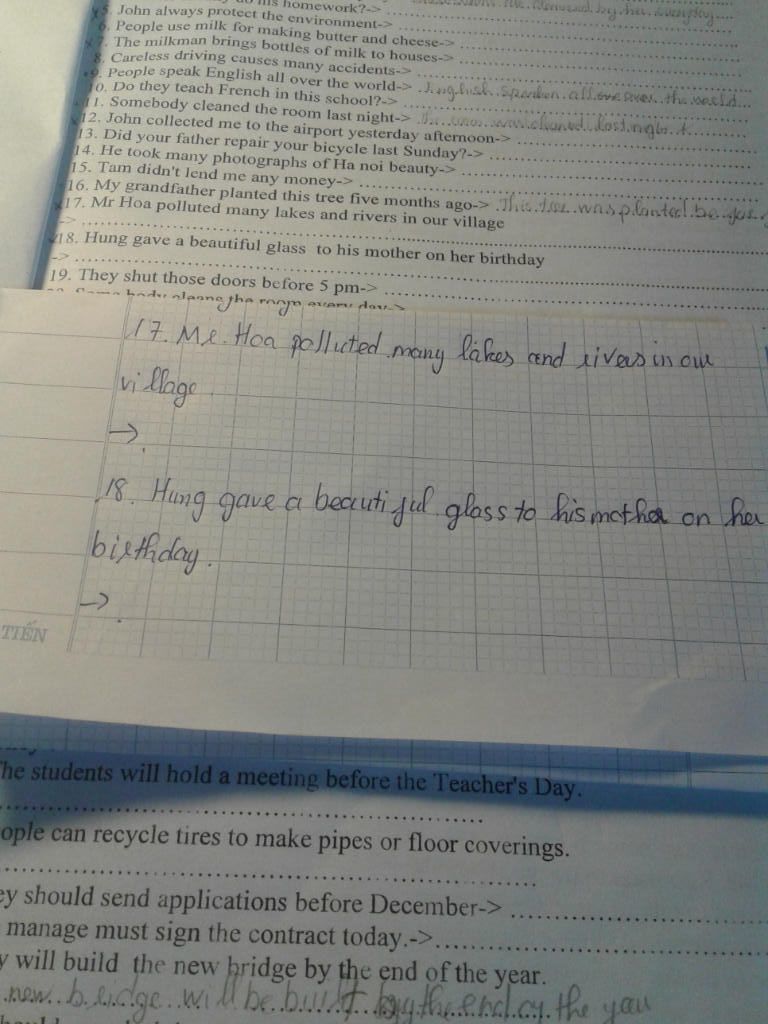 homework?->
5. John always protect the environment->
6. People use milk for making butter and cheese->
7. The milkman brings bottles of milk to houses->
8. Careless driving causes many accidents->
9. People speak English all over the world->
10. Do they teach French in this school?->
11. Somebody cleaned the room last night-> was cleaned last night
12. John collected me to the airport yesterday afternoon->
13. Did your father repair your bicycle last Sunday?->
14. He took many photographs of Ha noi beauty->
15. Tam didn't lend me any money->
16. My grandfather planted this tree five months ago-> This tree was planted
17. Mr Hoa polluted many lakes and rivers in our village
->
18. Hung gave a beautiful glass to his mother on her birthday
->
19. They shut those doors before 5 pm->
the room every day->
17. Mr. Hoa polluted many lakes and rivers in our
village.
→
18. Hung gave a beautiful glass to his mother on her
birthday.
→
TIẾN
he students will hold a meeting before the Teacher's Day.
ople can recycle tires to make pipes or floor coverings.
ey should send applications before December->
manage must sign the contract today.->
y will build the new bridge by the end of the year.
new bridge will be built by the end of the year